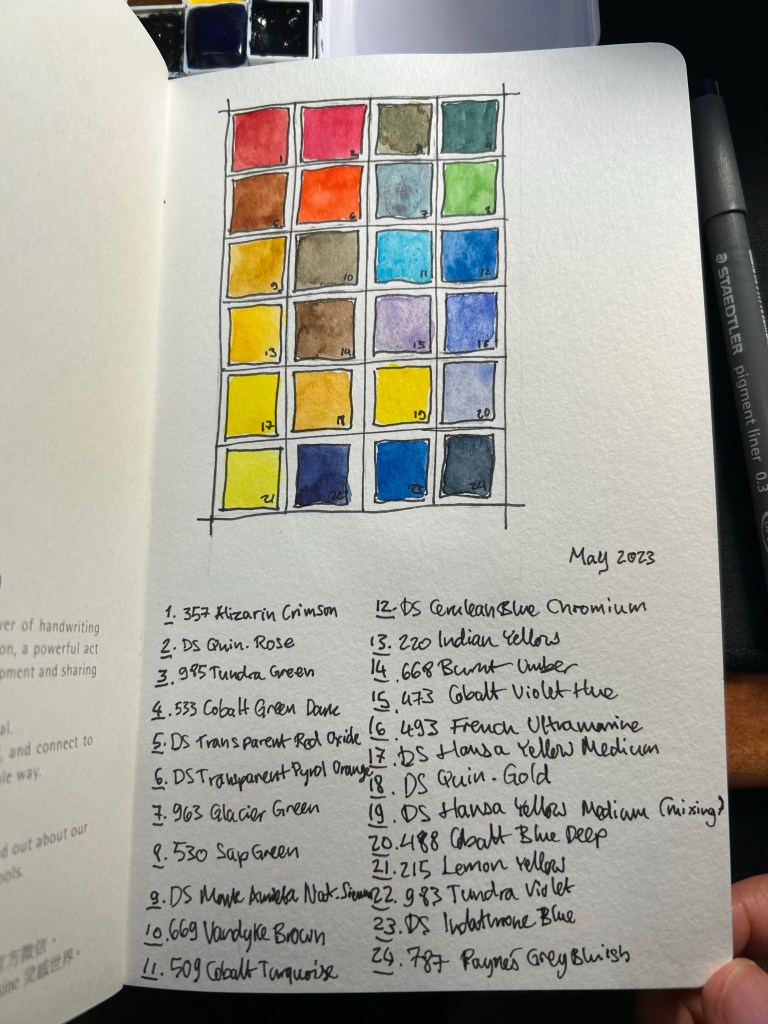 1
2
3
4
5
6
7
8
9
10
11
12
13
14
15
16
17
18
19
20
21
22
23
24
May 2023
1. 357 Alizarin Crimson
2. DS Quin. Rose
3. 985 Tundra Green
4. 533 Cobalt Green Dark
5. DS Transparent Red Oxide
6. DS Transparent Pyrol Orange
7. 963 Glacier Green
8. 530 Sap Green
9. DS Monte Amiata Nat. Sienna
10. 669 Vandyke Brown
11. 509 Cobalt Turquoise
12. DS Cerulean Blue Chromium
13. 220 Indian Yellow
14. 668 Burnt Umber
15. 473 Cobalt Violet Hue
16. 493 French Ultramarine
17. DS Hansa Yellow Medium
18. DS Quin. Gold
19. DS Hansa Yellow Medium (mixing)
20. 488 Cobalt Blue Deep
21. 215 Lemon Yellow
22. 983 Tundra Violet
23. DS Indathrone Blue
24. 787 Payne's Grey Bluish
STAEDTLER pigment liner 0.3
of handwriting
on, a powerful act
pment and sharing
al.
, and connect to
le way.
d out about our
ols.
方微信。
ine 灵感世界。